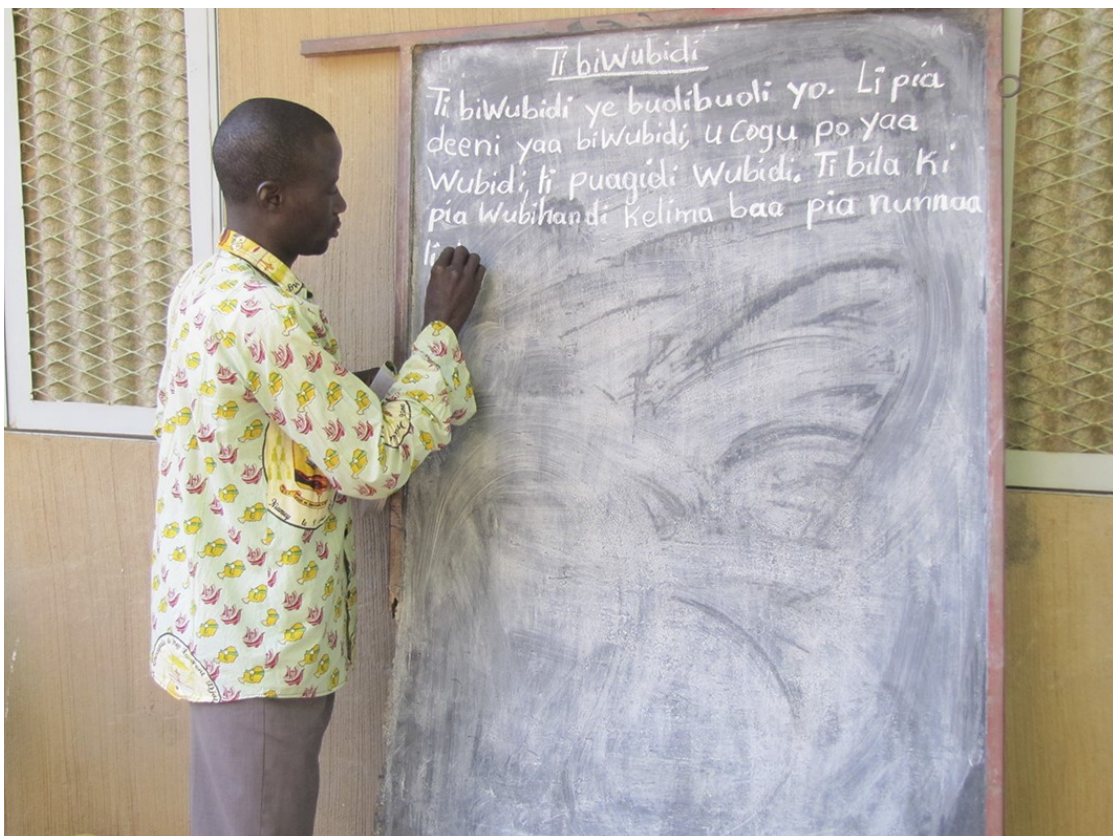 Ti biWubidi
Ti biWubidi ye buolibuoli yo. Li pia
deeni yaa biWubidi, u Cogu po yaa
Wubidi, ti puagidi Wubidi. Ti bila Ki
pia Wubihandi Kelima baa pia nunnaa